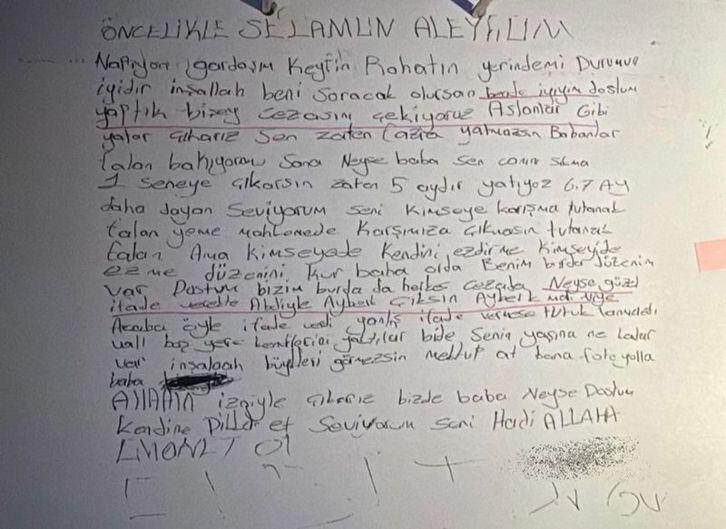 ÖNCELİKLE SELAMUN ALEYKUM
Napıyon gardaşım Keyfin Rahatın yerindemi Durumun
iyidir inşallah beni Soracak olursan bende iyiyim dostum
yaptık bizey cezasını çekiyoruz Aslanlar Gibi
yatar çıkarız Sen zaten fazla yatmazsın Babanlar
falan bakıyorum Sana Neyse baba sen canını sıkma
1 Seneye çıkarsın zaten 5 aydır yatıyoz 6.7 AY
daha dayan Seviyorum seni Kimseye karışma tutanak
falan yeme mahkemede karşımıza çıkmasın tutanak
falan Ama kimseyede Kendini ezdirme Kimseyide
ezme düzenini kur baba orda Benim burda düzenim
var Dostum bizim burda da herkes cezada Neyse güzel
ifade verdite Abdiyle Ayberk çıksın Ayberk niye
Acaba öyle ifade verdi yanlış ifade verirse tutuk
vall boş yere bide Senin yaşına ne kadar
var insalaah büyüleri görmezsin mektup at bana foto yolla
baba
AllAHın izniyle çıkarız bizde baba Neyse Dostum
Kendine Dikkat et Seviyorum Seni Hadi ALLAHA
EMANET Ol